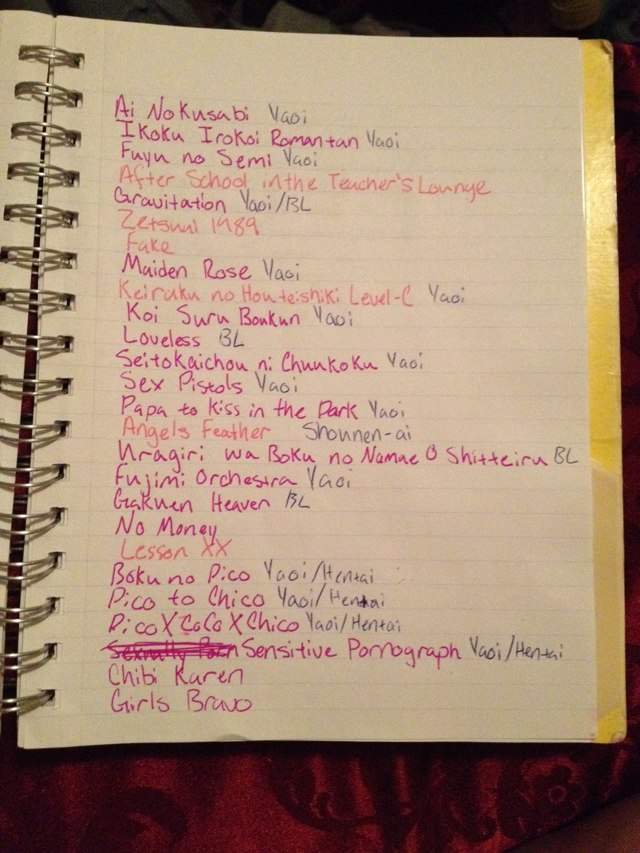 Ai No Kusabi Yaoi
Ikoku Irokoi Romantan Yaoi
Fuyu no Semi Yaoi
After School in the Teacher's Lounge
Gravitation Yaoi/BL
Zetsuai 1989
Fake
Maiden Rose Yaoi
Keiraku no Houteishiki Level-C Yaoi
Koi Suru Boukun Yaoi
Loveless BL
Seitokaichou ni Chuukoku Yaoi
Sex Pistols Yaoi
Papa to Kiss in the Dark Yaoi
Angels Feather Shounen-ai
Uragiri wa Boku no Namae O Shitteiru BL
Fujimi Orchestra Yaoi
Gakuen Heaven BL
No Money
Lesson XX
Boku no Pico Yaoi/Hentai
Pico to Chico Yaoi/Hentai
Pico X CoCo X Chico Yaoi/Hentai
Sensitive Pornograph Yaoi/Hentai
Chibi Karen
Girls Bravo